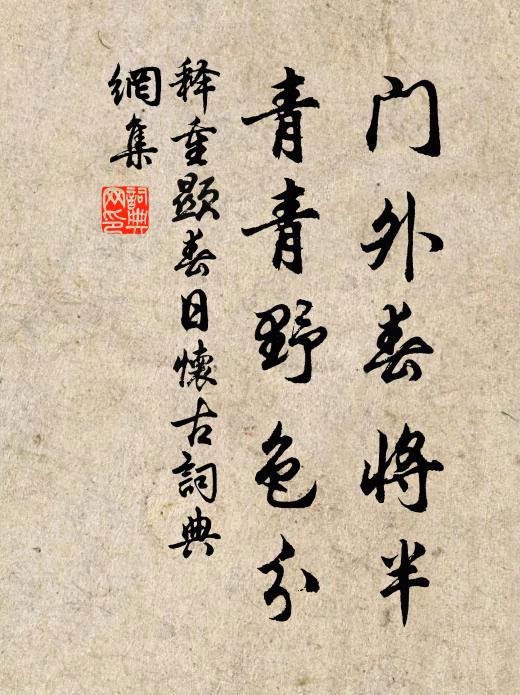 门外春将半
青青野色分
释重显春日懷古詞典
網集
詞典
网印